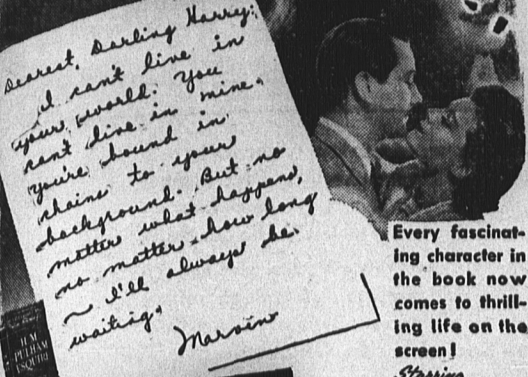 Dearest, Darling Harry:
I can't live in
your world. You
can't live in mine.
You're bound in
chains to your
background. But no
matter what happens,
no matter how long
~ I'll always be
waiting.
Marvin
H.M.
PULHAM
ESQUIRE
Every fascinat-
ing character in
the book now
comes to thrill-
ing life on the
screen!
Starring